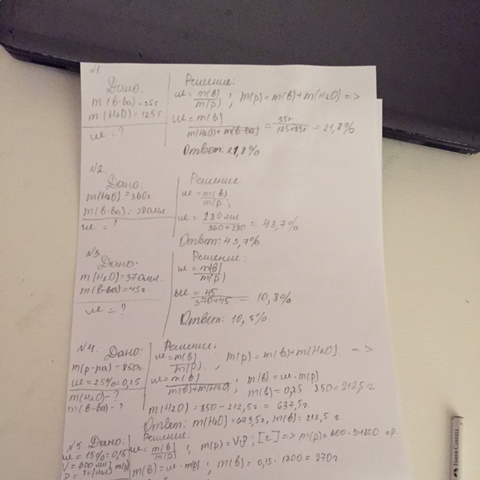 №1
Дано:
m(в-ва)=35г
m(H2O)=125г
ω=?
Решение:
ω = m(в)/m(р) ; m(р)=m(в)+m(H2O) =>
ω = m(в)/m(H2O)+m(в-ва) = 35г/125+35г = 21,8%
Ответ: 21,8%
№2
Дано:
m(H2O)=360г
m(в-ва)=280мл
ω=?
Решение
ω = m(в)/m(р) ;
ω = 280мл/360+280 = 43,7%
Ответ: 43,7%
№3
Дано:
m(H2O)=370мл
m(в-ва)=45г
ω=?
Решение:
ω = m(в)/m(р)
ω = 45/370+45 = 10,8%
Ответ: 10,8%
№4
Дано:
m(р-ра)=850г
ω=25%=0,25
m(H2O)-?
m(в-ва)-?
Решение:
ω = m(в)/m(р) ; m(р)=m(в)+m(H2O) =>
ω = m(в)/m(в)+m(H2O) ; m(в)=ω·m(р)
m(в)=0,25·850=212,5г
m(H2O)=850-212,5г=637,5г
Ответ: m(H2O)=637,5г, m(в)=212,5г
№5 Дано:
ω=15%=0,15
Решение:
ω = m(в)/m(р) ; m(р)=V·ρ ; [г] => m(р)=
m(в)=ω·m(р) ; m(в)=0,15·1800=270г